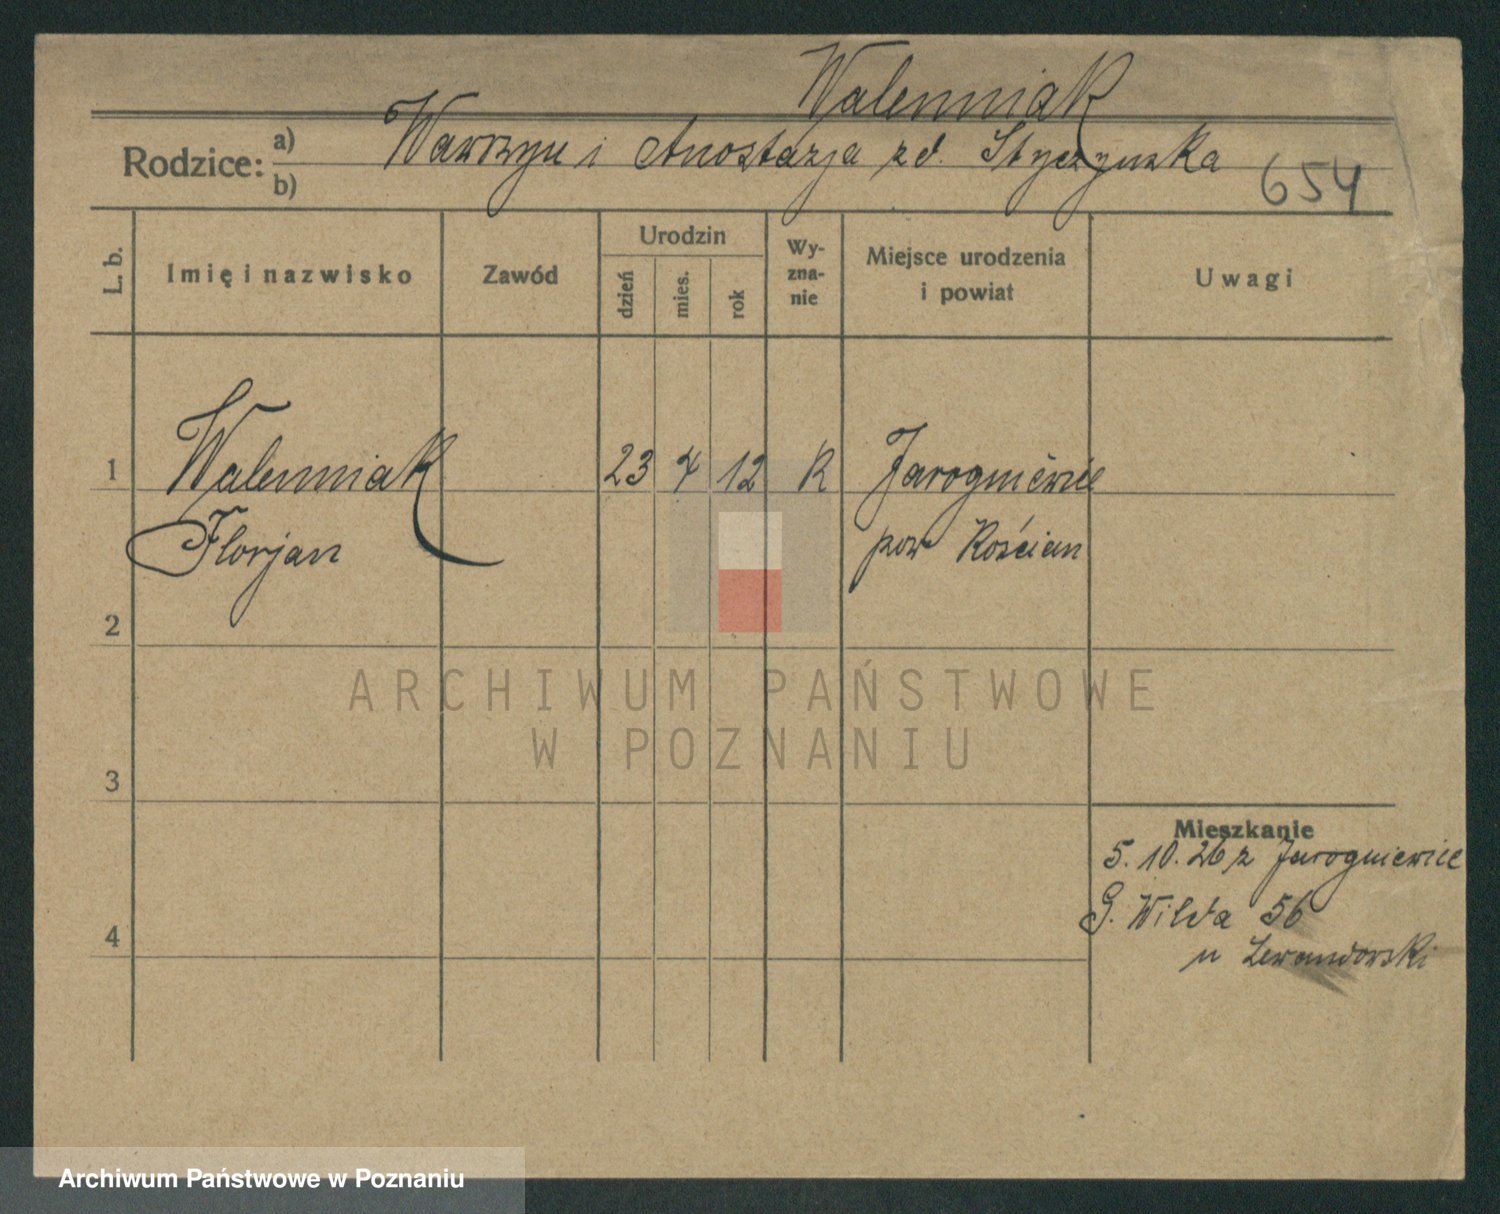 Walenniak
Rodzice: a) Wawrzyn i Anastazja zd. Styczynska
b)
654
L. b.
Imię i nazwisko
Zawód
Urodzin
dzień
mies.
rok
Wy-
zna-
nie
Miejsce urodzenia
i powiat
Uwagi
1 Walenniak 23 4 12 R Jarogniewice
Florjan pow Kościan
2
3
4
Mieszkanie
5. 10. 26 z Jarogniewice
G. Wilda 56
u Lewandowski
ARCHIWUM PAŃSTWOWE
W POZNANIU
Archiwum Państwowe w Poznaniu